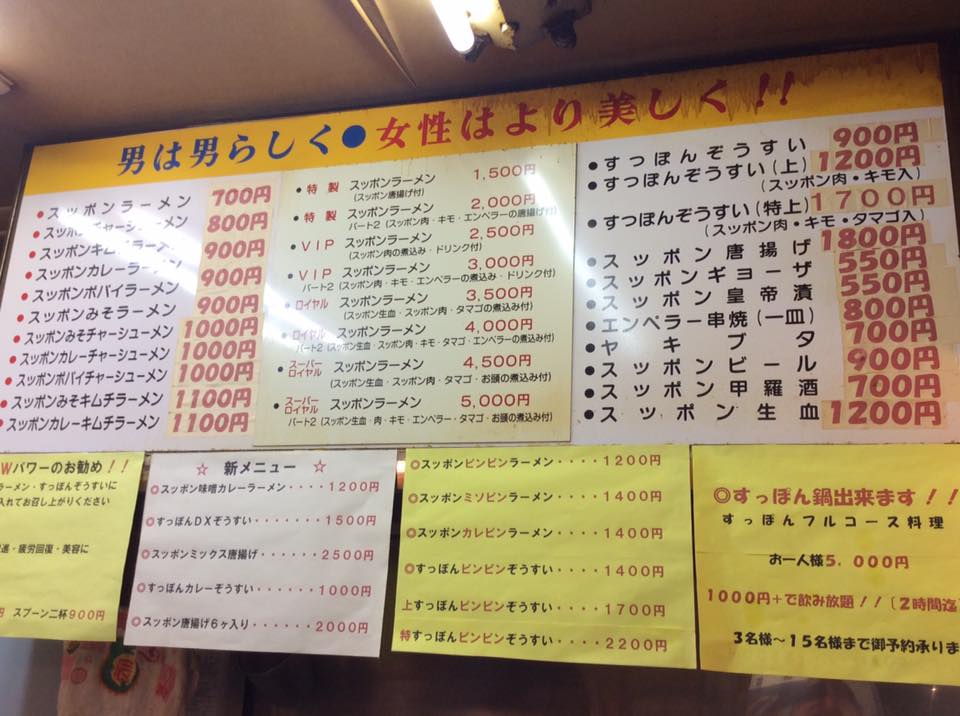 男は男らしく●女性はより美しく!!
●スッポンラーメン 700円
●スッポンチャーシューメン 800円
●スッポンキムチラーメン 900円
●スッポンカレーラーメン 900円
●スッポンポパイラーメン 900円
●スッポンみそラーメン 900円
●スッポンみそチャーシューメン 1000円
●スッポンカレーチャーシューメン 1000円
●スッポンポパイチャーシューメン 1000円
●スッポンみそキムチラーメン 1100円
●スッポンカレーキムチラーメン 1100円
●特製 スッポンラーメン 1,500円
(スッポン唐揚げ付)
●特製 スッポンラーメン 2,000円
パート2 (スッポン肉・キモ・エンペラーの唐揚げ付)
●VIP スッポンラーメン 2,500円
(スッポン肉の煮込み・ドリンク付)
●VIP スッポンラーメン 3,000円
パート2 (スッポン肉・キモ・エンペラーの煮込み・ドリンク付)
●ロイヤル スッポンラーメン 3,500円
(スッポン生血・スッポン肉・タマゴの煮込み付)
●ロイヤル スッポンラーメン 4,000円
パート2 (スッポン生血・スッポン肉・キモ・タマゴ・エンペラーの煮込み付)
●スーパーロイヤル スッポンラーメン 4,500円
(スッポン生血・スッポン肉・タマゴ・お頭の煮込み付)
●スーパーロイヤル スッポンラーメン 5,000円
パート2 (スッポン生血・肉・キモ・エンペラー・タマゴ・お頭の煮込み付)
●すっぽんぞうすい 900円
●すっぽんぞうすい(上) 1200円
(スッポン肉・キモ入)
●すっぽんぞうすい(特上) 1700円
(スッポン肉・キモ・タマゴ入)
●スッポン唐揚げ 1800円
●スッポンギョーザ 550円
●スッポン皇帝漬 550円
●エンペラー串焼(一皿) 800円
●ヤキブタ 700円
●スッポンビール 900円
●スッポン甲羅酒 700円
●スッポン生血 1200円
Wパワーのお勧め!!
ラーメン・すっぽんぞうすいに
入れてお召し上がりください
進・疲労回復・美容に
円 スプーン二杯900円
☆ 新メニュー ☆
◎スッポン味噌カレーラーメン・・・・1200円
◎すっぽんDXぞうすい・・・・・・・1500円
◎スッポンミックス唐揚げ・・・・・2500円
◎すっぽんカレーぞうすい・・・・・1000円
◎スッポン唐揚げ6ヶ入り・・・・・2000円
◎スッポンビンビンラーメン・・・・1200円
◎スッポンミソビンラーメン・・・・1400円
◎スッポンカレビンラーメン・・・・1400円
◎すっぽんビンビンぞうすい・・・・1400円
上すっぽんビンビンぞうすい・・・・1700円
特すっぽんビンビンぞうすい・・・・2200円
◎すっぽん鍋出来ます!!
すっぽんフルコース料理
お一人様5.000円
1000円+で飲み放題!!(2時間迄
3名様〜15名様まで御予約承りま